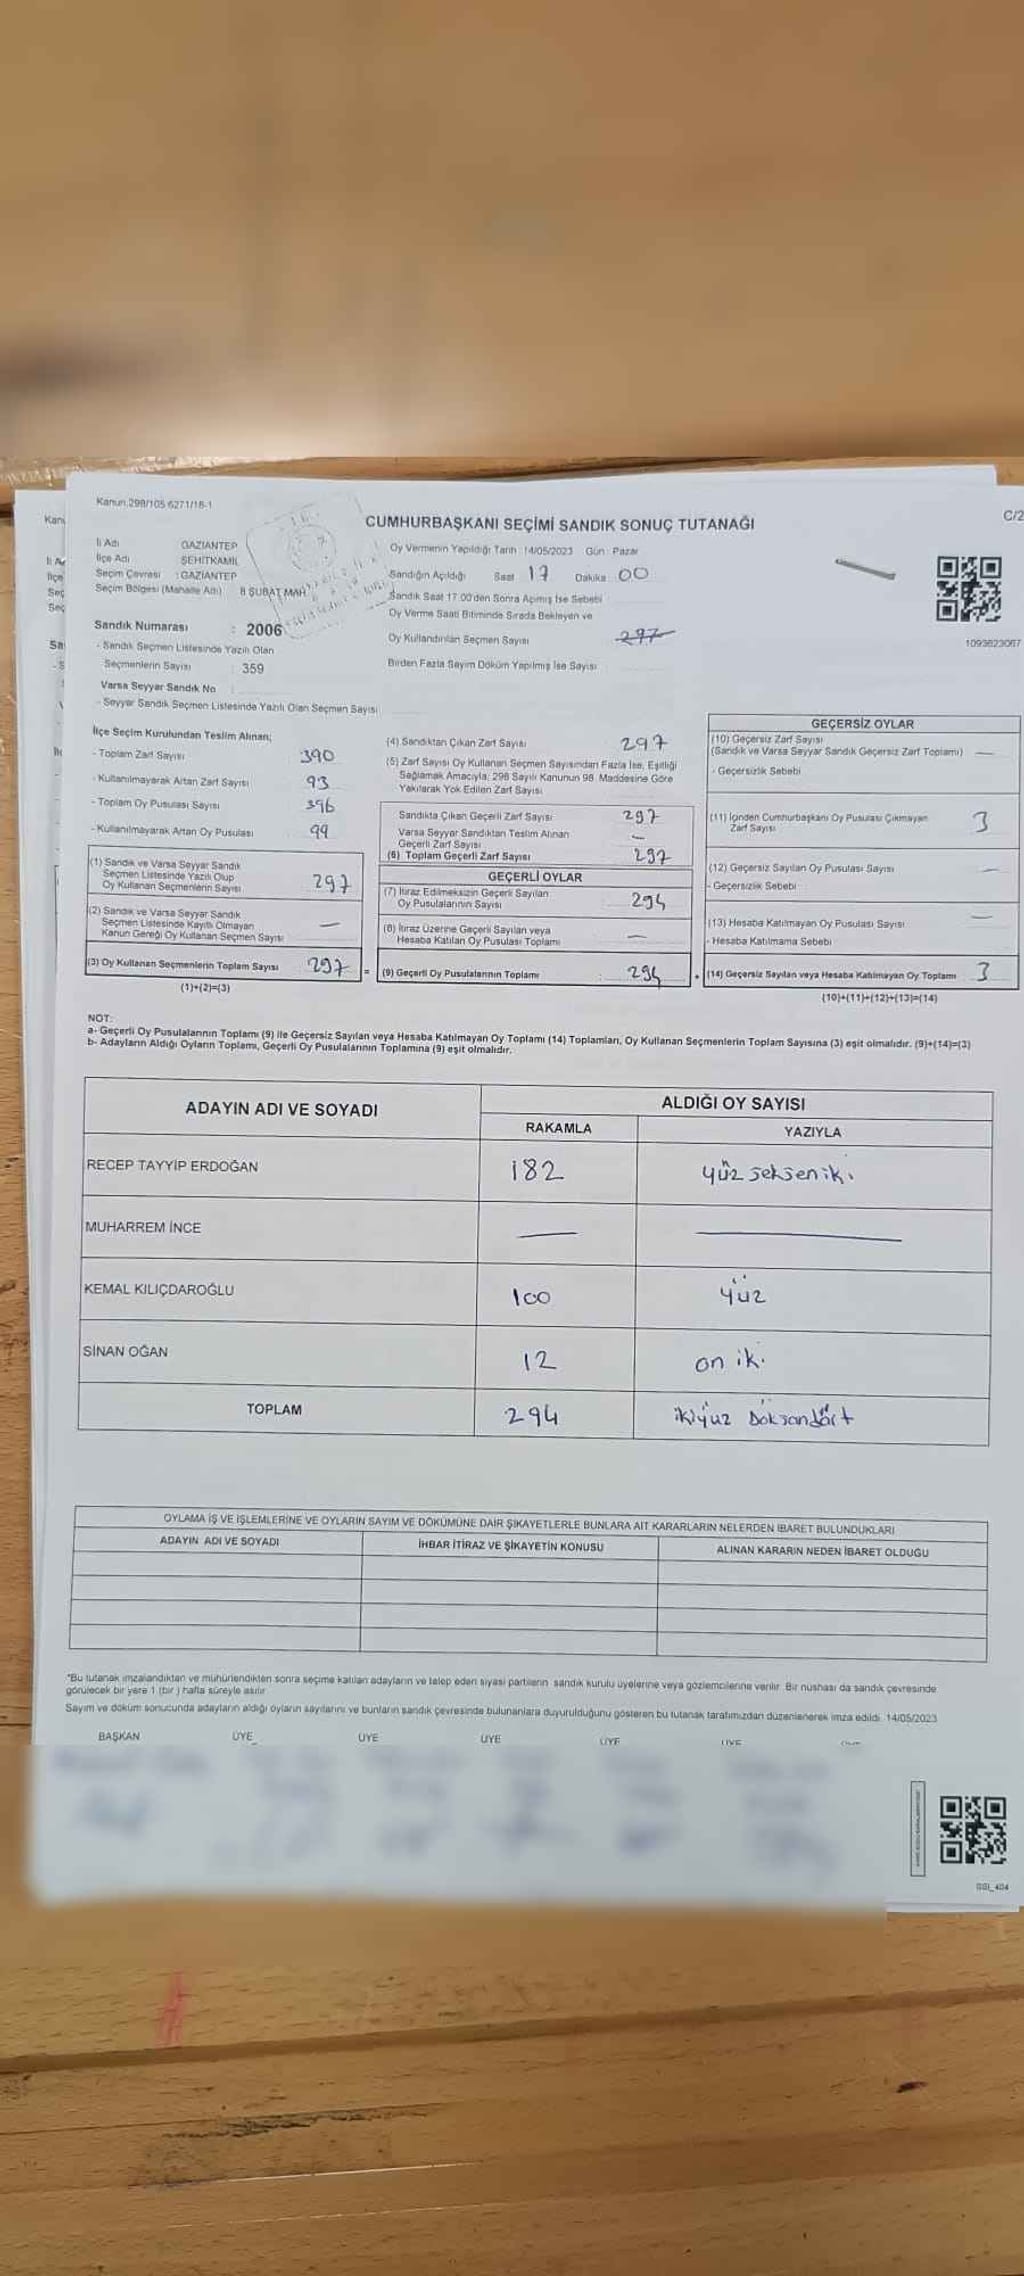 Kanun.298/105 6271/18-1
C/2
CUMHURBAŞKANI SEÇİMİ SANDIK SONUÇ TUTANAĞI
İl Adı GAZİANTEP
İlçe Adı ŞEHİTKAMİL
Seçim Çevresi : GAZİANTEP
Seçim Bölgesi (Mahalle Adı) 8 ŞUBAT MAH
Sandık Numarası : 2006
- Sandık Seçmen Listesinde Yazılı Olan
Seçmenlerin Sayısı : 359
Varsa Seyyar Sandık No
- Seyyar Sandık Seçmen Listesinde Yazılı Olan Seçmen Sayısı
Oy Vermenin Yapıldığı Tarih : 14/05/2023 Gün : Pazar
Sandığın Açıldığı Saat 17 Dakika 00
Sandık Saat 17.00'den Sonra Açımış İse Sebebi
Oy Verme Saati Bitiminde Sırada Bekleyen ve
Oy Kullandırılan Seçmen Sayısı 297
Birden Fazla Sayım Döküm Yapılmış İse Sayısı
1093623067
İlçe Seçim Kurulundan Teslim Alınan;
- Toplam Zarf Sayısı 390
- Kullanılmayarak Artan Zarf Sayısı 93
- Toplam Oy Pusulası Sayısı 396
- Kullanılmayarak Artan Oy Pusulası 99
(1) Sandık ve Varsa Seyyar Sandık
Seçmen Listesinde Yazılı Olup
Oy Kullanan Seçmenlerin Sayısı 297
(2) Sandık ve Varsa Seyyar Sandık
Seçmen Listesinde Kayıtlı Olmayan
Kanun Gereği Oy Kullanan Seçmen Sayısı —
(3) Oy Kullanan Seçmenlerin Toplam Sayısı 297 =
(1)+(2)=(3)
(4) Sandıktan Çıkan Zarf Sayısı 297
(5) Zarf Sayısı Oy Kullanan Seçmen Sayısından Fazla İse, Eşitliği
Sağlamak Amacıyla, 298 Sayılı Kanunun 98. Maddesine Göre
Yakılarak Yok Edilen Zarf Sayısı
Sandıkta Çıkan Geçerli Zarf Sayısı 297
Varsa Seyyar Sandıktan Teslim Alınan
Geçerli Zarf Sayısı —
(6) Toplam Geçerli Zarf Sayısı 297
GEÇERLİ OYLAR
(7) İtiraz Edilmeksizin Geçerli Sayılan
Oy Pusulalarının Sayısı 294
(8) İtiraz Üzerine Geçerli Sayılan veya
Hesaba Katılan Oy Pusulası Toplamı —
(9) Geçerli Oy Pusulalarının Toplamı : 294 +
GEÇERSİZ OYLAR
(10) Geçersiz Zarf Sayısı
(Sandık ve Varsa Seyyar Sandık Geçersiz Zarf Toplamı) —
- Geçersizlik Sebebi
(11) İçinden Cumhurbaşkanı Oy Pusulası Çıkmayan
Zarf Sayısı 3
(12) Geçersiz Sayılan Oy Pusulası Sayısı —
- Geçersizlik Sebebi
(13) Hesaba Katılmayan Oy Pusulası Sayısı —
- Hesaba Katılmama Sebebi
(14) Geçersiz Sayılan veya Hesaba Katılmayan Oy Toplamı 3
(10)+(11)+(12)+(13)=(14)
NOT:
a- Geçerli Oy Pusulalarının Toplamı (9) ile Geçersiz Sayılan veya Hesaba Katılmayan Oy Toplamı (14) Toplamları, Oy Kullanan Seçmenlerin Toplam Sayısına (3) eşit olmalıdır. (9)+(14)=(3)
b- Adayların Aldığı Oyların Toplamı, Geçerli Oy Pusulalarının Toplamına (9) eşit olmalıdır.
ADAYIN ADI VE SOYADI ALDIĞI OY SAYISI
RAKAMLA YAZIYLA
RECEP TAYYİP ERDOĞAN 182 yüz seksen iki
MUHARREM İNCE — —
KEMAL KILIÇDAROĞLU 100 yüz
SİNAN OĞAN 12 on iki
TOPLAM 294 ikiyüz Doksandört
OYLAMA İŞ VE İŞLEMLERİNE VE OYLARIN SAYIM VE DÖKÜMÜNE DAİR ŞİKAYETLERLE BUNLARA AİT KARARLARIN NELERDEN İBARET BULUNDUKLARI
ADAYIN ADI VE SOYADI İHBAR İTİRAZ VE ŞİKAYETİN KONUSU ALINAN KARARIN NEDEN İBARET OLDUĞU
*Bu tutanak imzalandıktan ve mühürlendikten sonra seçime katılan adayların ve talep eden siyasi partilerin sandık kurulu üyelerine veya gözlemcilerine verilir. Bir nüshası da sandık çevresinde
görülecek bir yere 1 (bir) hafta süreyle asılır.
Sayım ve döküm sonucunda adayların aldığı oyların sayılarını ve bunların sandık çevresinde bulunanlara duyurulduğunu gösteren bu tutanak tarafımızdan düzenlenerek imza edildi. 14/05/2023
BAŞKAN ÜYE ÜYE ÜYE ÜYE ÜYE